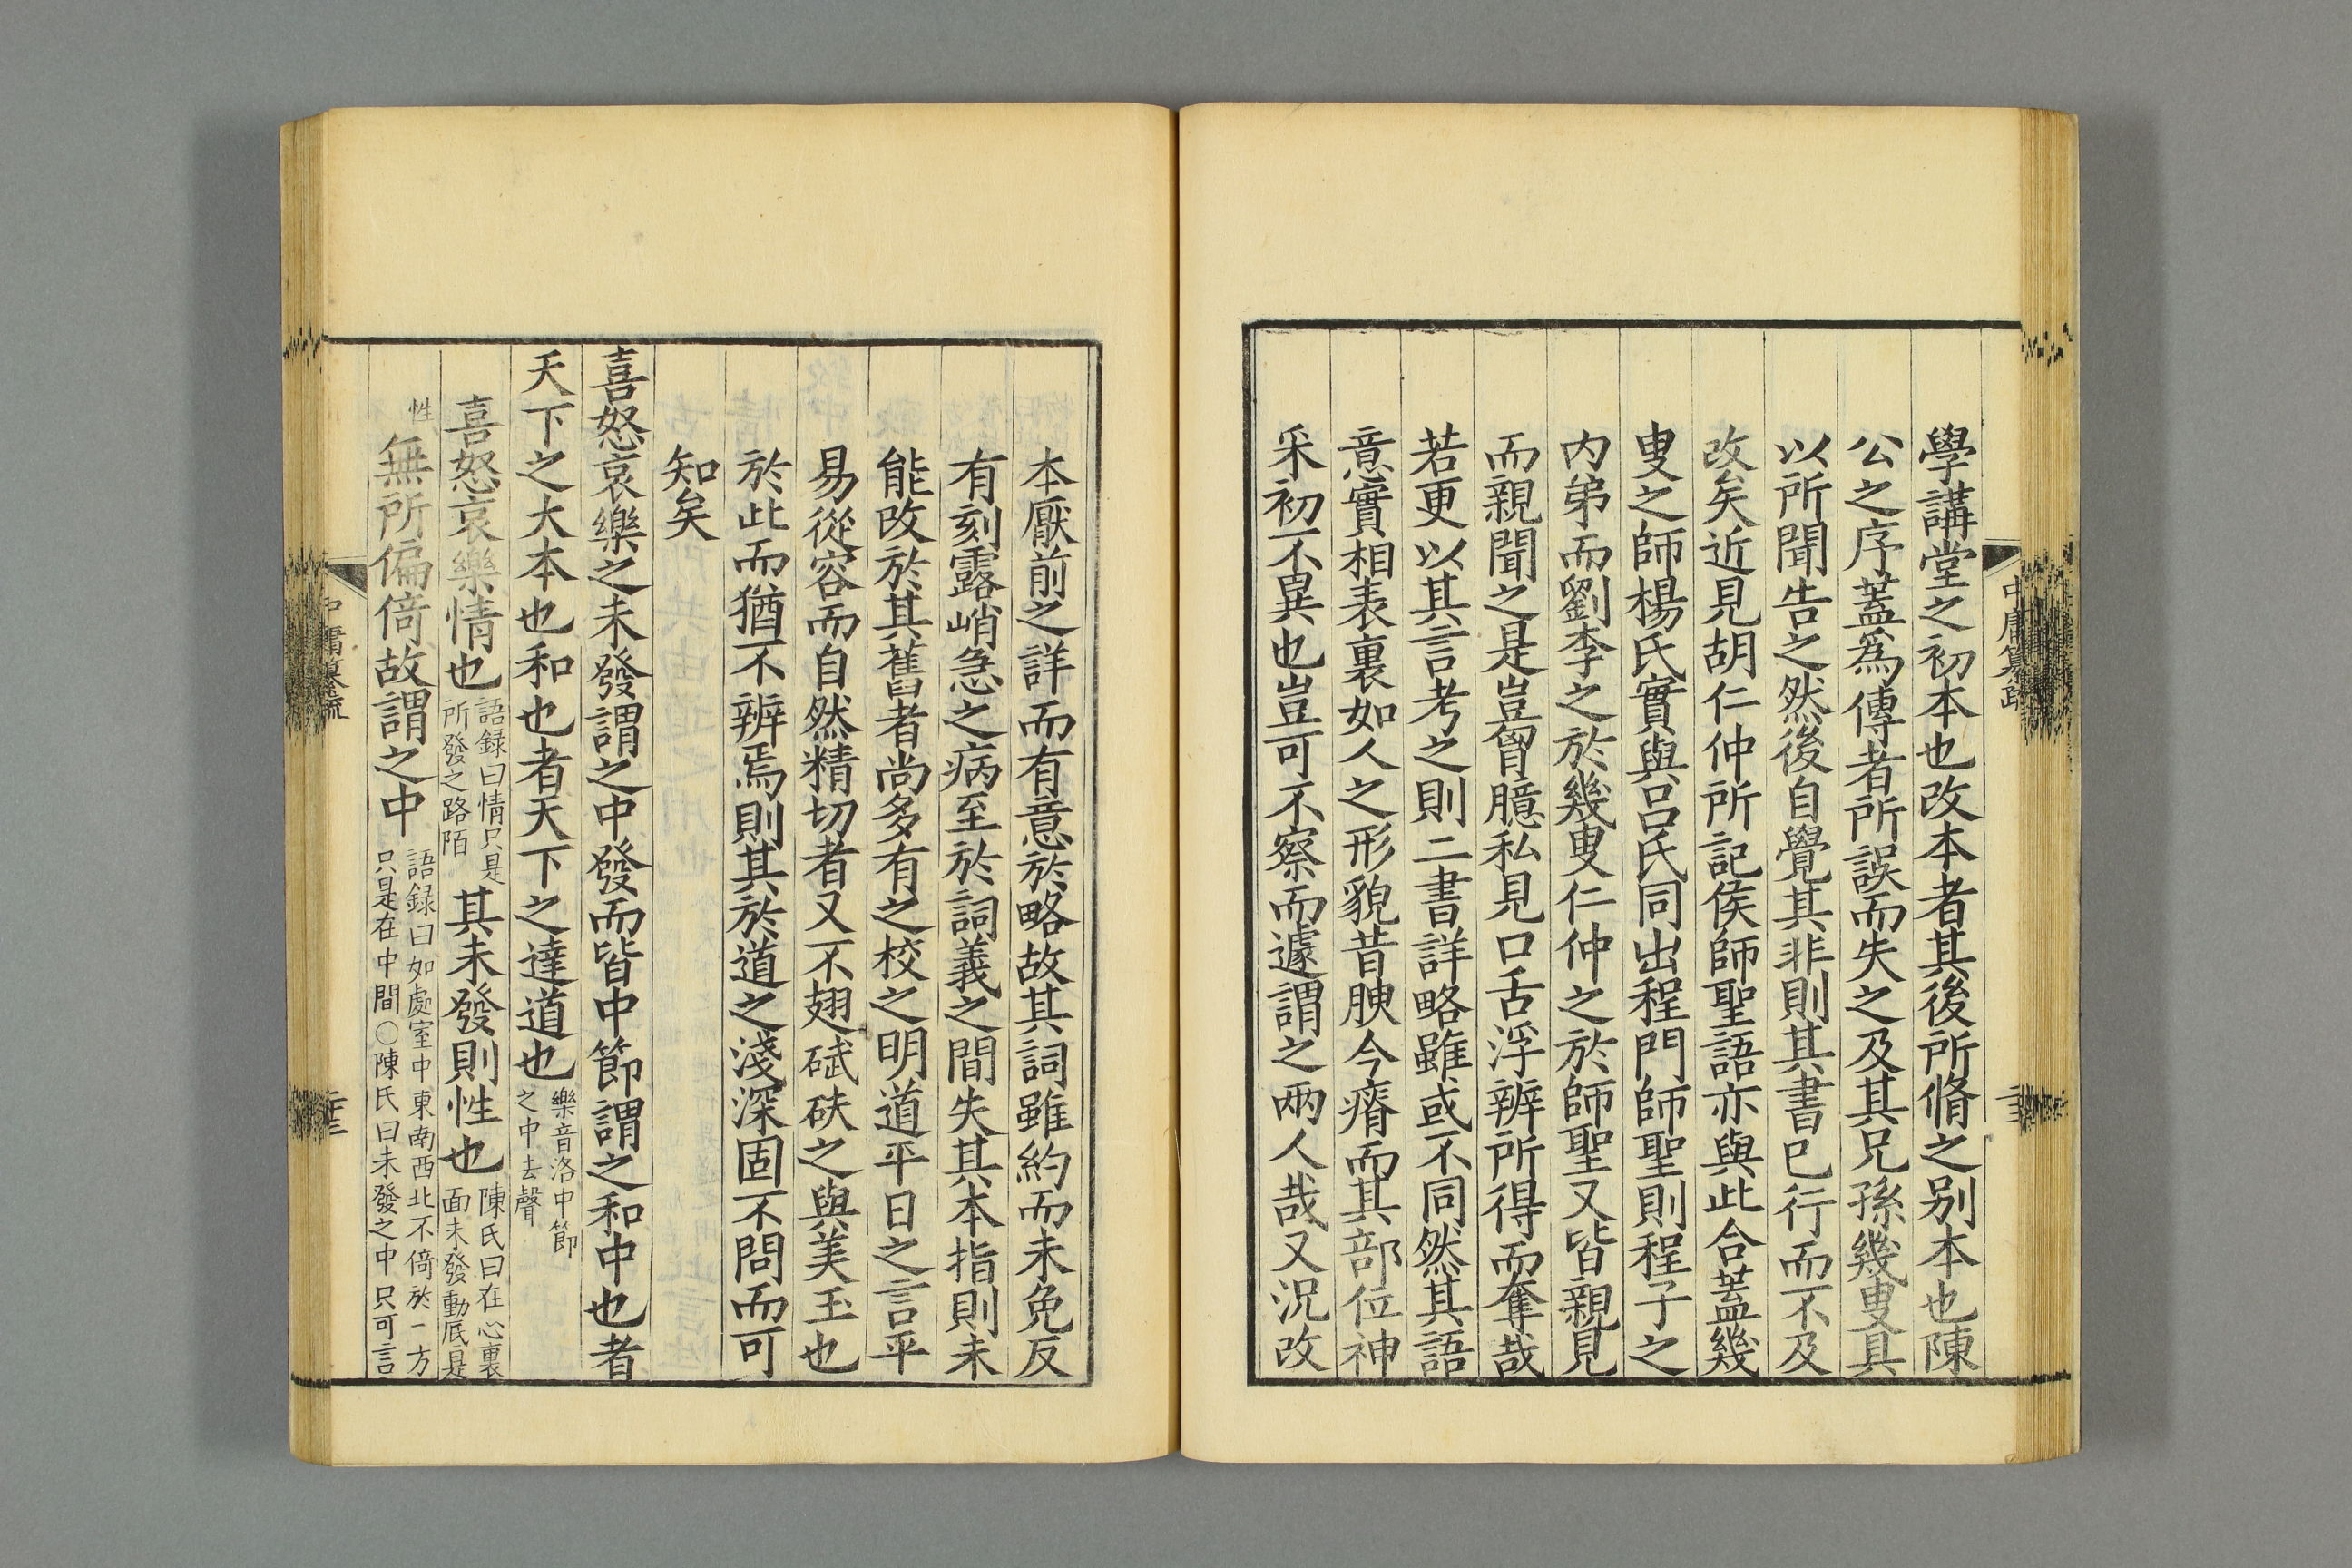 學講堂之初本也改本者其後所脩之别本也陳
公之序蓋爲傳者所誤而失之及其兄孫幾叟具
以所聞告之然後自覺其非則其書已行而不及
改矣近見胡仁仲所記侯師聖語亦與此合蓋幾
叟之師楊氏實與吕氏同出程門師聖則程子之
内弟而劉李之於幾叟仁仲之於師聖又皆親見
而親聞之是豈胷臆私見口舌浮辨所得而奪哉
若更以其言考之則二書詳略雖或不同然其語
意實相表裏如人之形貌昔腴今瘠而其部位神
采初不異也豈可不察而遽謂之兩人哉又況改
本厭前之詳而有意於略故其詞雖約而未免反
有刻露峭急之病至於詞義之間失其本指則未
能改於其舊者尚多有之校之明道平日之言平
易從容而自然精切者又不翅碔砆之與美玉也
於此而猶不辨焉則其於道之淺深固不問而可
知矣
喜怒哀樂之未發謂之中發而皆中節謂之和中也者
天下之大本也和也者天下之達道也樂音洛中節之中去聲
喜怒哀樂情也語録曰情只是所發之路陌其未發則性也陳氏曰在心裏面未發動底是
性無所偏倚故謂之中語録曰如處室中東南西北不倚於一方只是在中間○陳氏曰未發之中只可言
中庸纂疏